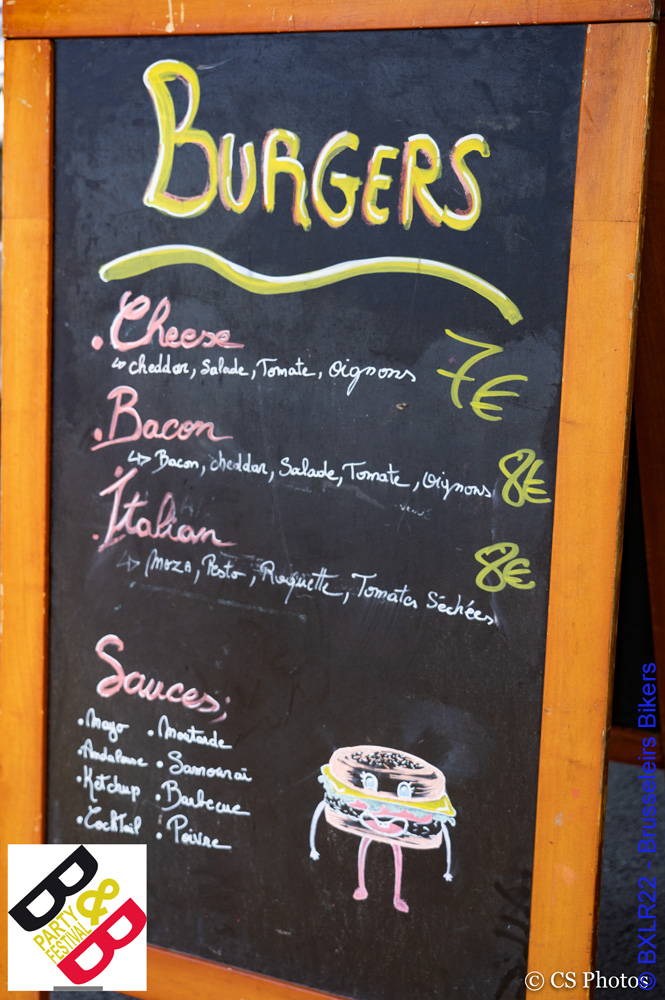 BURGERS
. Cheese
↳ cheddar, Salade, Tomate, oignons 7€
. Bacon
↳ Bacon, cheddar, Salade, Tomate, oignons 8€
. Italian
↳ Moza, Pesto, Roquette, Tomates Séchées 8€
Sauces;
. Mayo . Moutarde
. Andalouse . Samouraï
. Ketchup . Barbecue
. Cocktail . Poivre
B&B
PARTY
FESTIVAL
© CS Photos
© BXLR22 - Brusseleirs Bikers